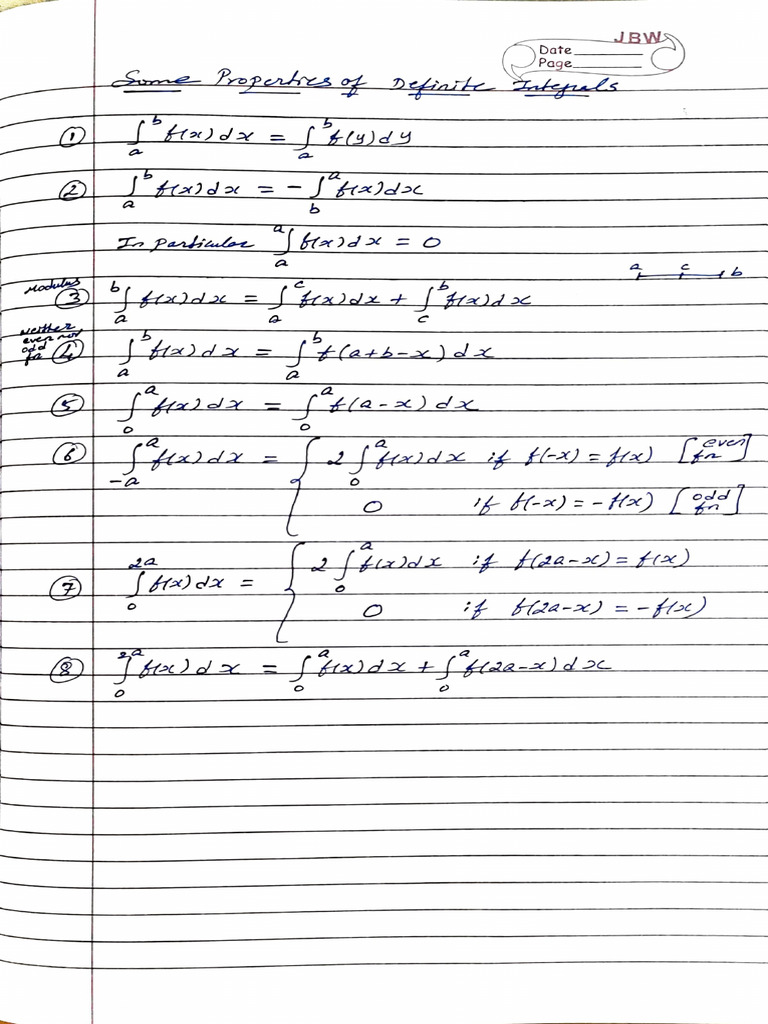 JBW
Date
Page
Some Properties of Definite Integrals
① ∫ₐᵇ f(x)dx = ∫ₐᵇ f(y)dy
② ∫ₐᵇ f(x)dx = -∫_b^a f(x)dx
In particular ∫ₐᵃ f(x)dx = 0
a c b
Modulus
③ ∫ₐᵇ f(x)dx = ∫ₐᶜ f(x)dx + ∫_c^b f(x)dx
Neither
even nor
odd
fn
④ ∫ₐᵇ f(x)dx = ∫ₐᵇ f(a+b-x)dx
⑤ ∫₀ᵃ f(x)dx = ∫₀ᵃ f(a-x)dx
⑥ ∫₋ₐᵃ f(x)dx = { 2∫₀ᵃ f(x)dx if f(-x) = f(x) [even fn]
0 if f(-x) = -f(x) [odd fn]
⑦ ∫₀²ᵃ f(x)dx = { 2∫₀ᵃ f(x)dx if f(2a-x) = f(x)
0 if f(2a-x) = -f(x)
⑧ ∫₀²ᵃ f(x)dx = ∫₀ᵃ f(x)dx + ∫₀ᵃ f(2a-x)dx